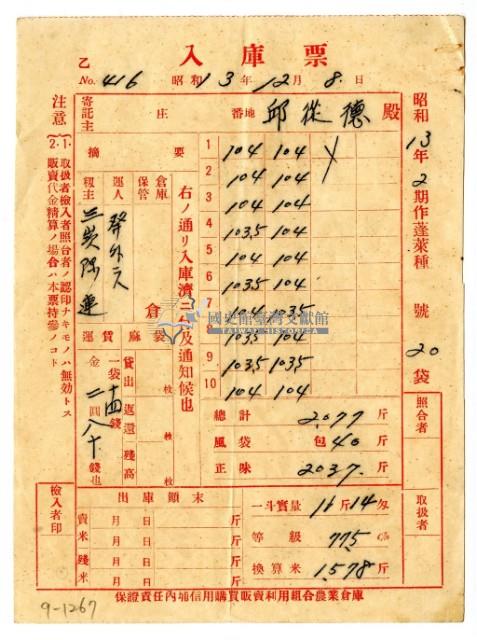 入庫票
乙
No. 416 昭和13年12月8日
寄託主 庄 番地 邱從德 殿
昭和13年2期作蓬萊種 號 20袋
注意
1. 取扱者檢入者照合者ノ認印ナキモノハ無効トス
2. 販賣代金精算ノ場合ハ本票持參ノコト
摘要
倉庫保管
倉
運人
籾主
右ノ通リ入庫濟ニ付及通知候也
1 104 104
2 104 104
3 104 104
4 103.5 104
5 104 104
6 103.5 104
7 104 103.5
8 103.5 104
9 103.5 103.5
10 104 104
國史館臺灣文獻館
TAIWAN HISTORICA
運賃
一袋 十四錢
金 二圓八十錢也
麻袋
貸出 枚
返還 枚
殘高 枚
總計 2077斤
風袋 包40斤
正味 2037斤
照合者
取扱者
檢入者印
出庫顛末
賣米 月 日 斤
月 日 斤
殘米 月 日 斤
月 日 斤
一斗實量 11斤14匁
等級 77.5 %
換算米 1,578斤
保證責任內埔信用購買販賣利用組合農業倉庫
9-1267